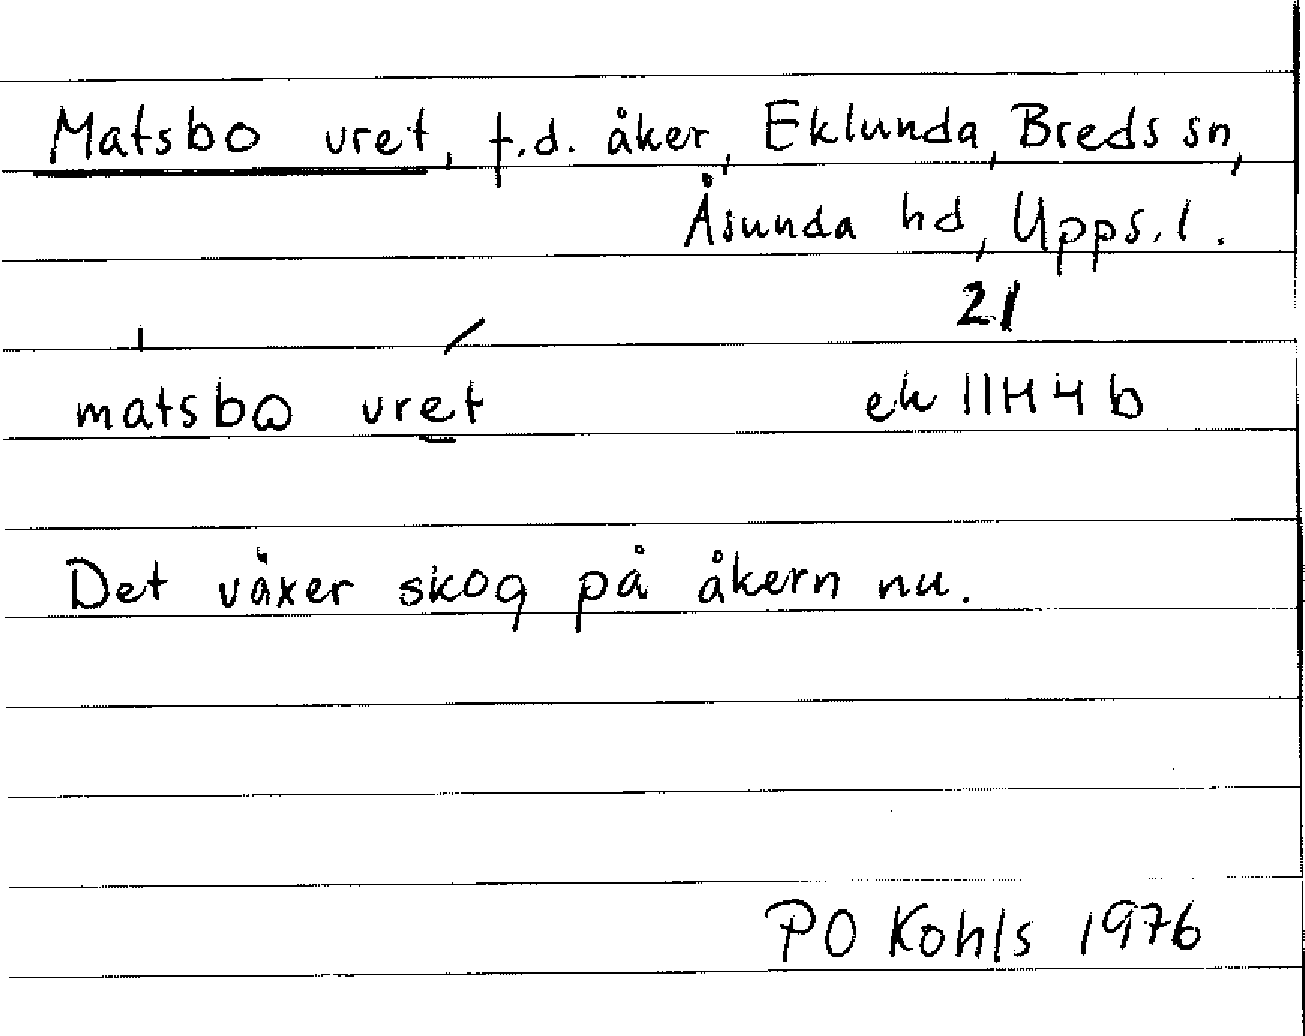 Matsbo vret, f.d. åker, Eklunda, Breds sn,
Åsunda hd, Upps. l.
21
matsbɷ vret ek 11H 4b
Det växer skog på åkern nu.
PO Kohls 1976